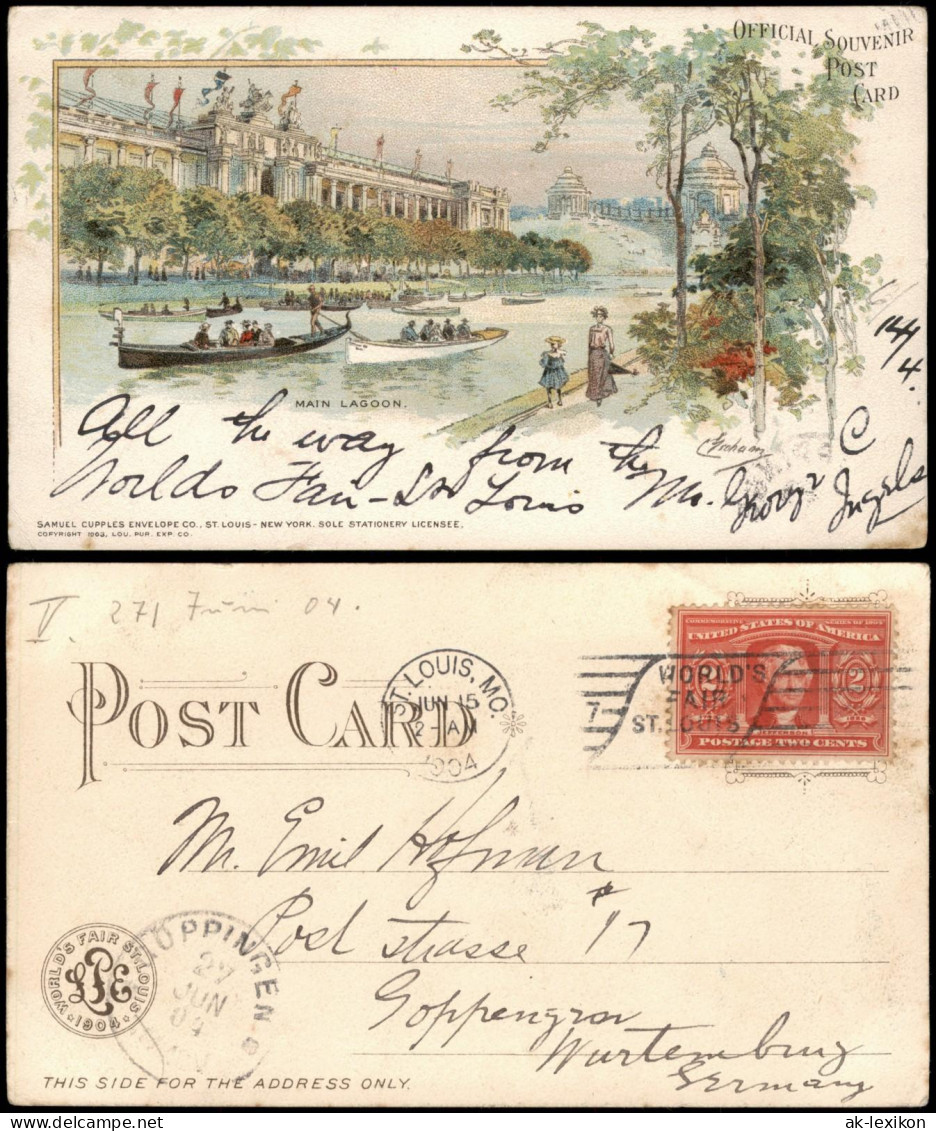 OFFICIAL SOUVENIR
POST
CARD
14/4.
MAIN LAGOON.
All the way from the
Worlds Fair - St Louis Mo. George C Ingels
SAMUEL CUPPLES ENVELOPE CO., ST. LOUIS - NEW YORK. SOLE STATIONERY LICENSEE.
COPYRIGHT 1903, LOU. PUR. EXP. CO.
V. 27/ Juni 04.
POST CARD
ST. LOUIS, MO.
JUN 15
2 - AM
1904
7
WORLD'S
FAIR
ST. LOUIS
COMMEMORATIVE SERIES OF 1904
UNITED STATES OF AMERICA
2
JEFFERSON
POSTAGE TWO CENTS
Mr. Emil Hofman
Post strasse # 17
Goppengen
Wurtemburg
Germany
WORLD'S FAIR ST. LOUIS
LPE
1904
27
JUN
04
THIS SIDE FOR THE ADDRESS ONLY.
ak-lexikon